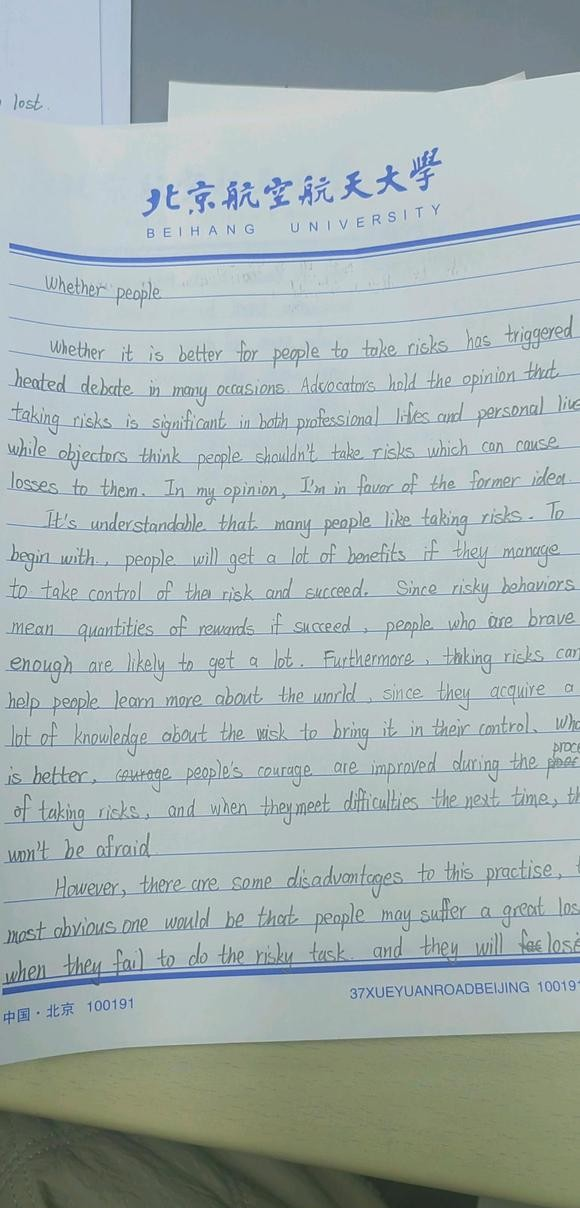 lost.
北京航空航天大學
BEIHANG UNIVERSITY
Whether people
Whether it is better for people to take risks has triggered
heated debate in many occasions. Advocators hold the opinion that
taking risks is significant in both professional lifes and personal
while objectors think people shouldn't take risks which can cause
losses to them. In my opinion, I'm in favor of the former idea.
It's understandable that many people like taking risks. To
begin with, people will get a lot of benefits if they manage
to take control of the risk and succeed. Since risky behaviors
mean quantities of rewards if succeed, people who are brave
enough are likely to get a lot. Furthermore, taking risks can
help people learn more about the world, since they acquire a
lot of knowledge about the risk to bring it in their control.
is better, courage people's courage are improved during the
of taking risks, and when they meet difficulties the next time,
won't be afraid
However, there are some disadvantages to this practise,
most obvious one would be that people may suffer a great
when they fail to do the risky task. and they will
中国·北京 100191
37XUEYUANROADBEIJING 100191